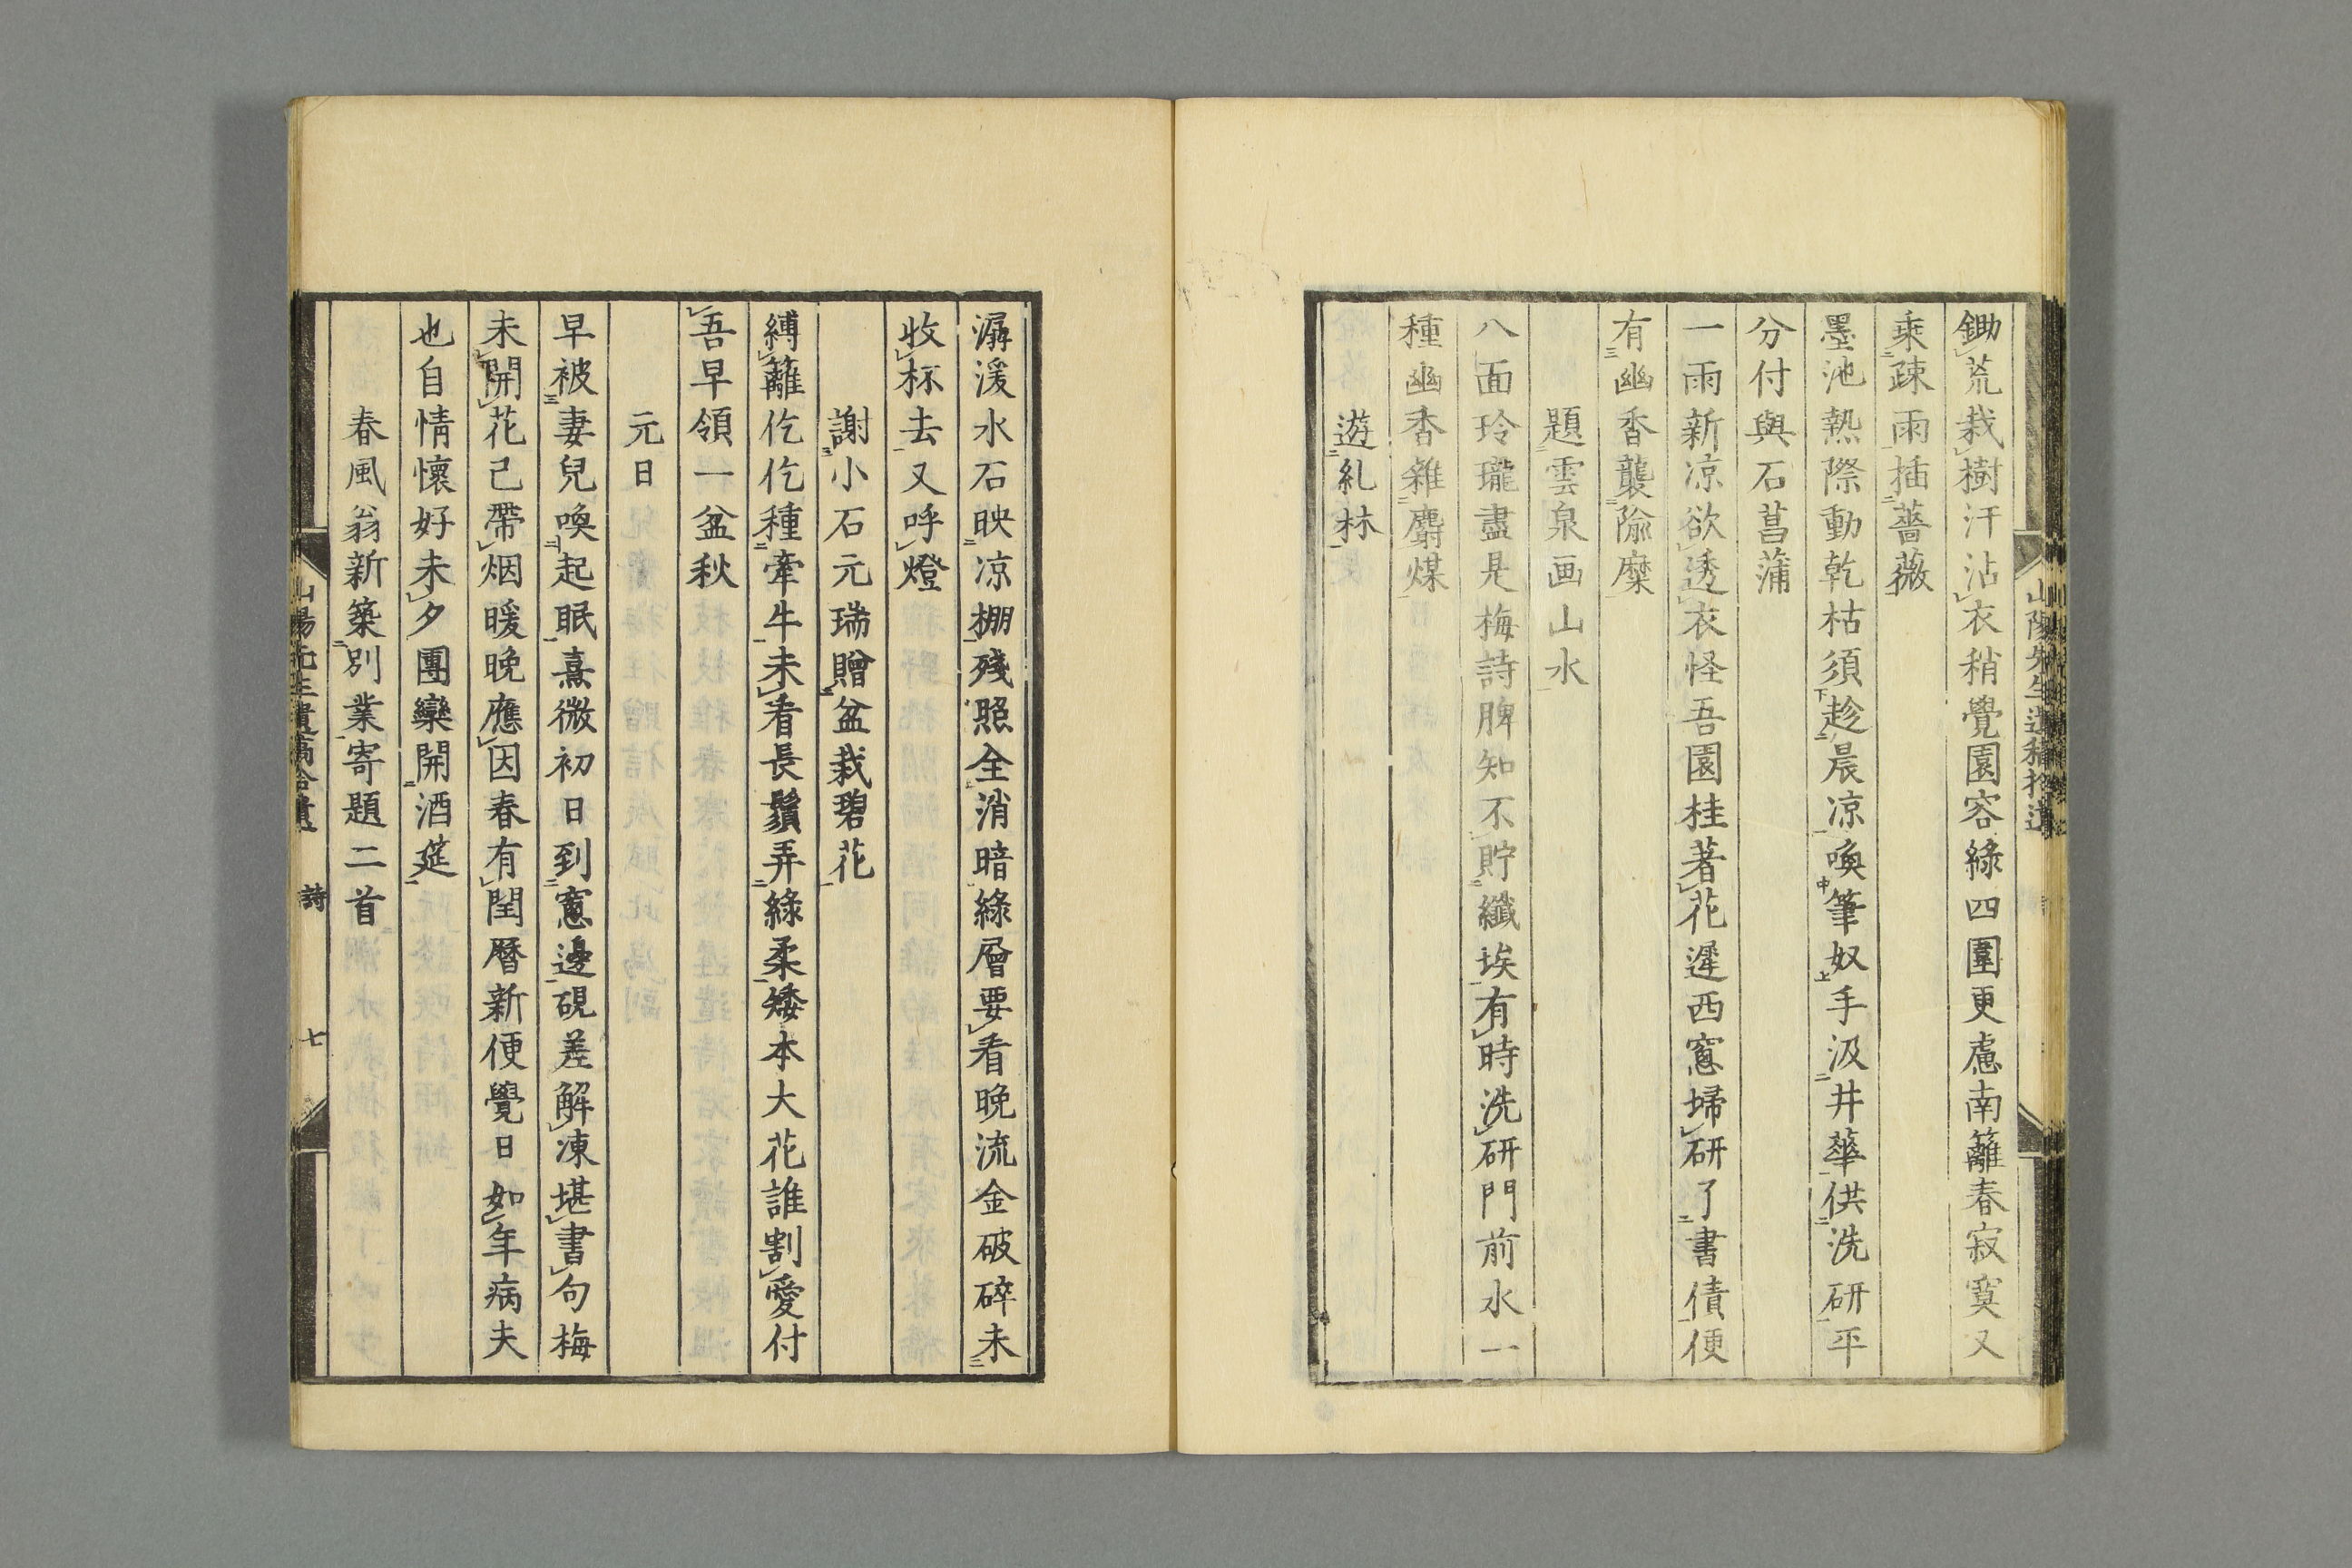 鋤荒栽樹汗沾衣稍覺園容綠四圍更慮南籬春寂寞又
乘疎雨插薔薇
墨池熱際動乾枯須趁晨凉喚筆奴手汲井華供洗研平
分付與石菖蒲
一雨新凉欲透衣怪吾園桂著花遲西窓掃研了書債便
有幽香襲隃糜
題雲泉画山水
八面玲瓏盡是梅詩脾知不貯纖埃有時洗研門前水一
種幽香雜麝煤
遊糺林
潺湲水石映凉棚殘照全消暗綠層要看晚流金破碎未
收杯去又呼燈
謝小石元瑞贈盆栽碧花
縛籬仡仡種牽牛未看長鬚弄綠柔矮本大花誰割愛付
吾早領一盆秋
元日
早被妻兒喚起眠熹微初日到窓邊硯差解凍堪書句梅
未開花已帶烟暖晚應因春有閏曆新便覺日如年病夫
也自情懷好未夕團欒開酒筵
春風翁新築別業寄題二首
山陽先生遺稿拾遺 詩 七